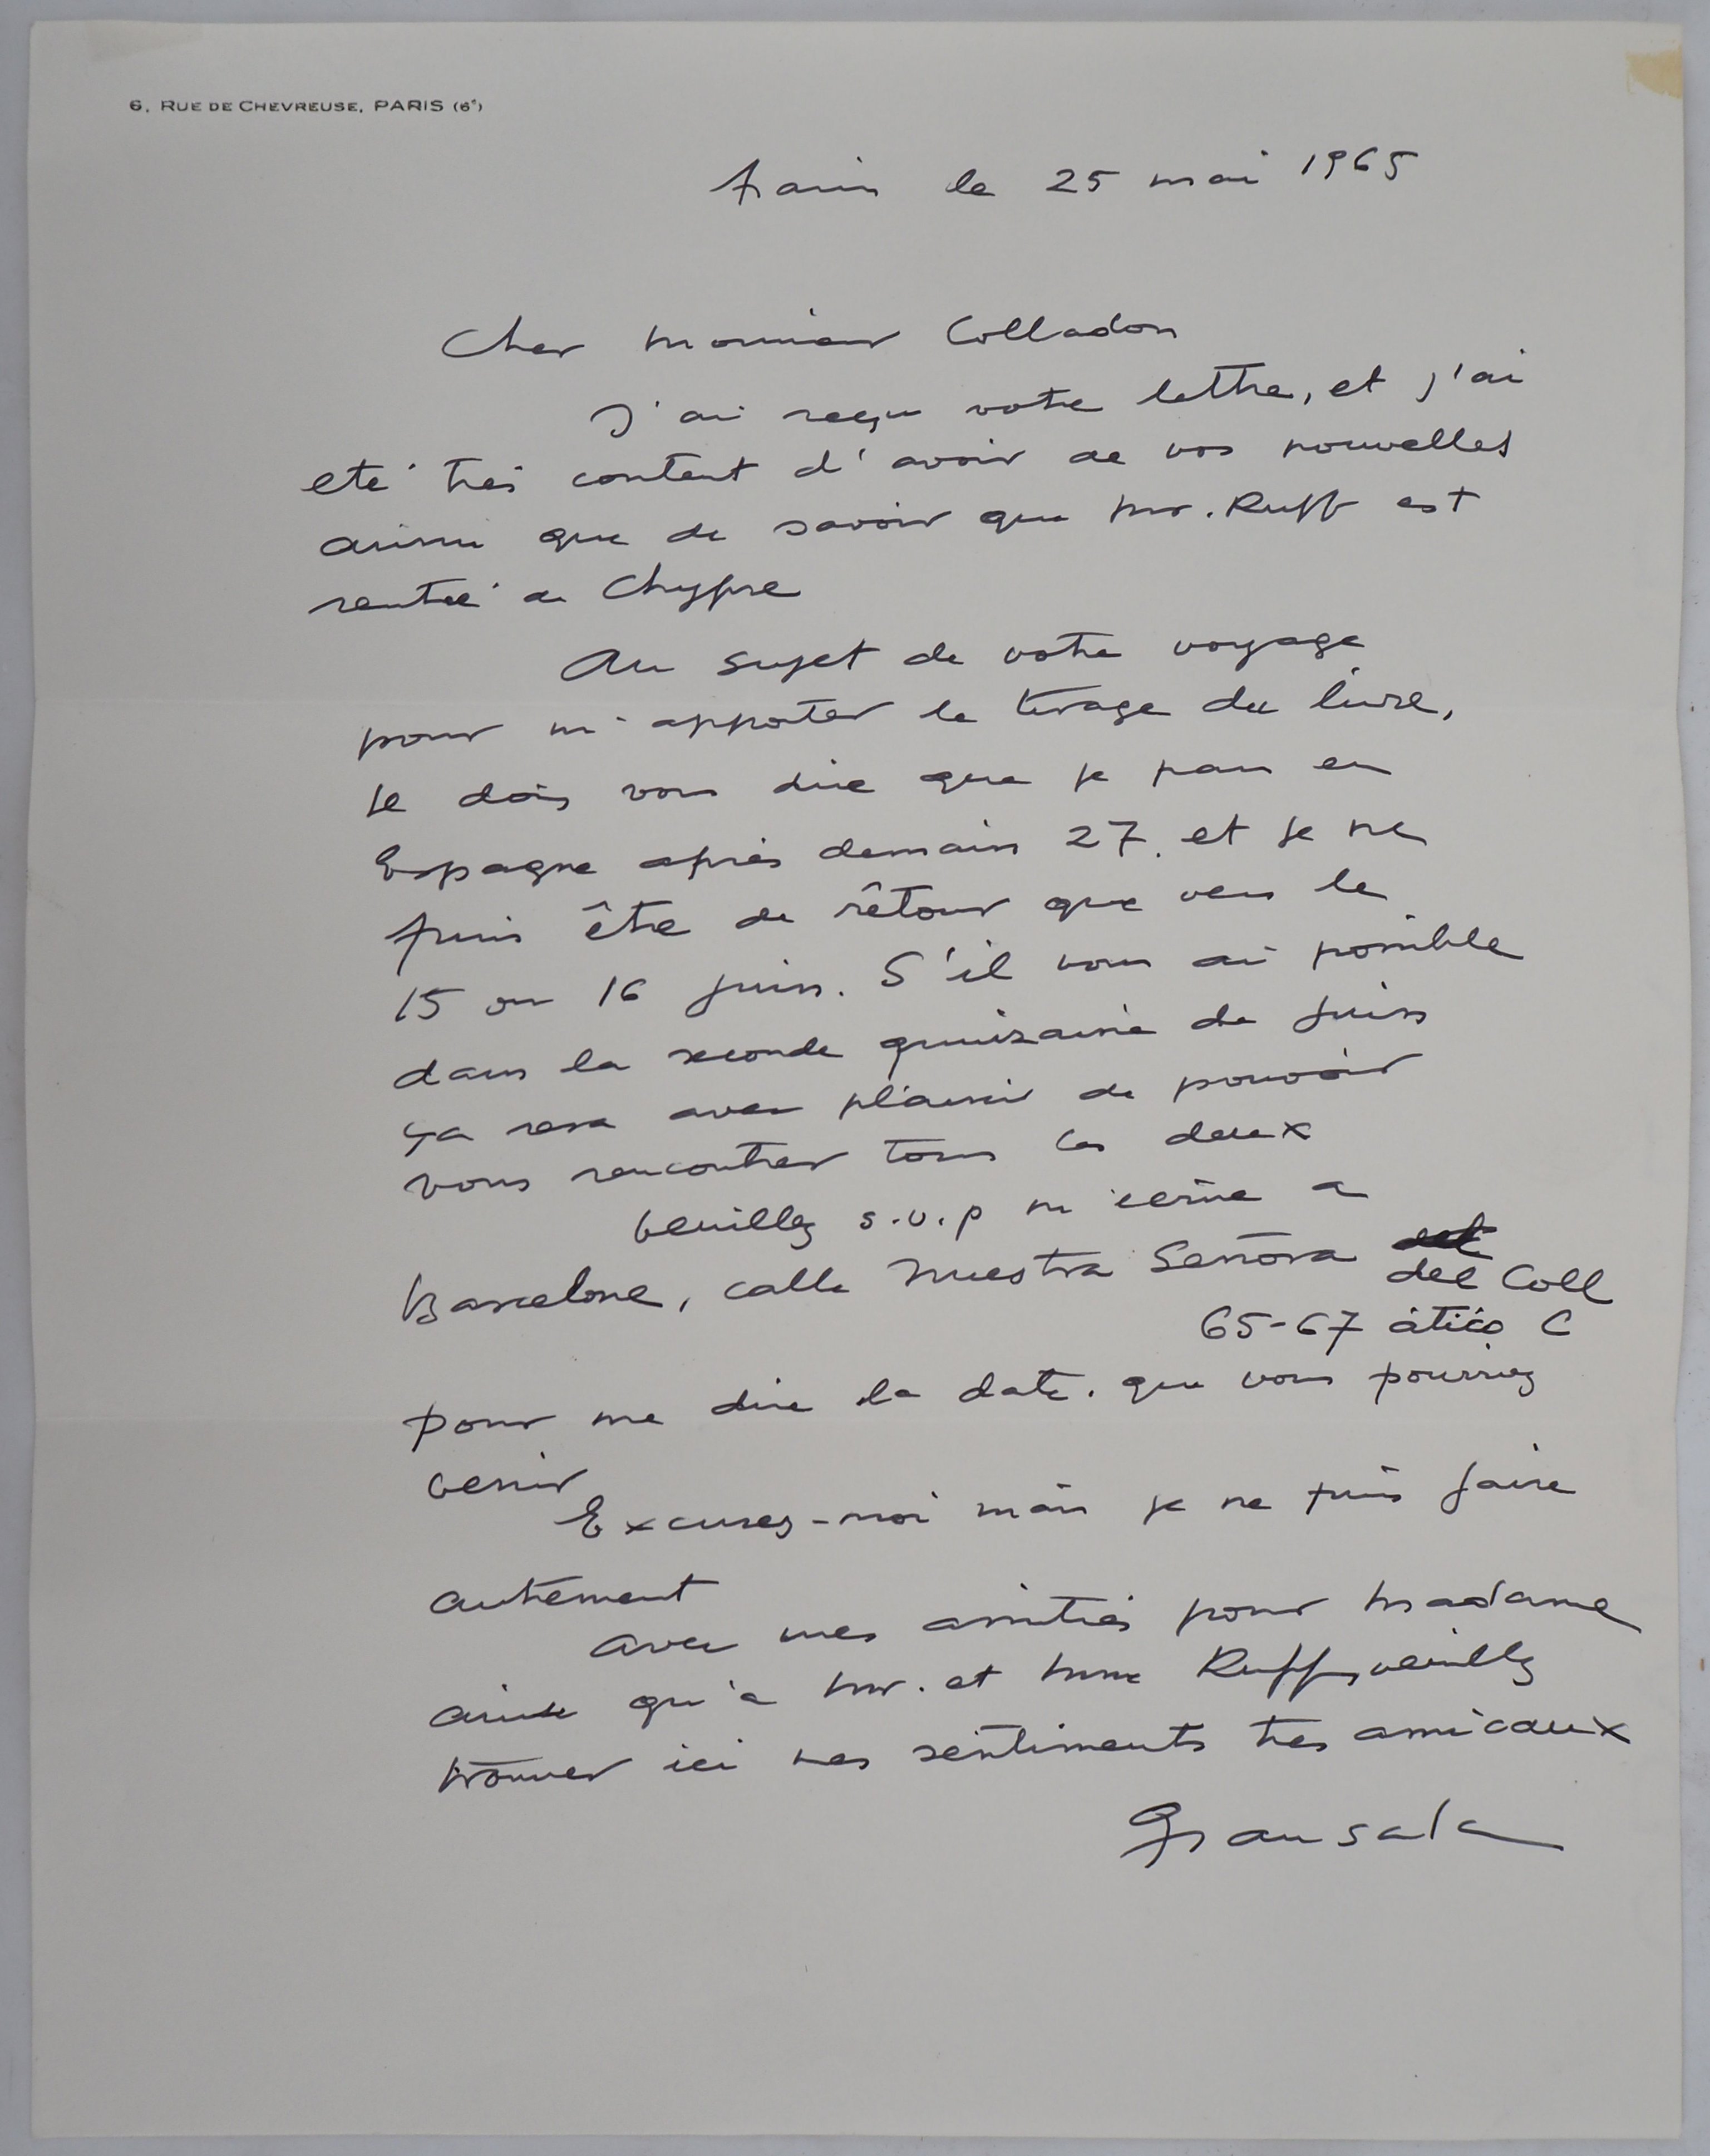 6, RUE DE CHEVREUSE, PARIS (6e)
Paris le 25 mai 1965
Cher Monsieur Colladon
J'ai reçu votre lettre, et j'ai
eté très content d'avoir de vos nouvelles
ainsi que de savoir que Mr. Ruff est
rentré de Chypre
Au sujet de votre voyage
pour m'apporter le tirage du livre,
je dois vous dire que je pars en
Espagne après demain 27. et je ne
puis être de rêtour que vers le
15 ou 16 juin. S'il vous ai possible
dans la seconde quinzaine de juin
ça sera avec plaisir de pouvoir
vous rencontrer tous les deux
Veuillez s.v.p m'ecrire a
Barcelone, calle Nuestra Señora del Coll
65-67 ático C
pour me dire la date. que vous pourriez
venir
Excusez-moi mais je ne puis faire
autrement
avec mes amitiés pour Madame
ainsi qu'a Mr. et Mme Ruff, veuillez
trouver ici mes sentiments tres amicaux
Grau Sala